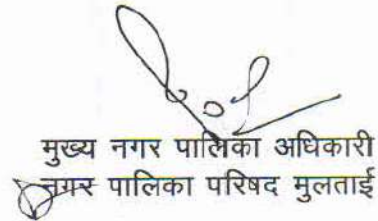 मुख्य नगर पालिका अधिकारी
नगर पालिका परिषद मुलताई